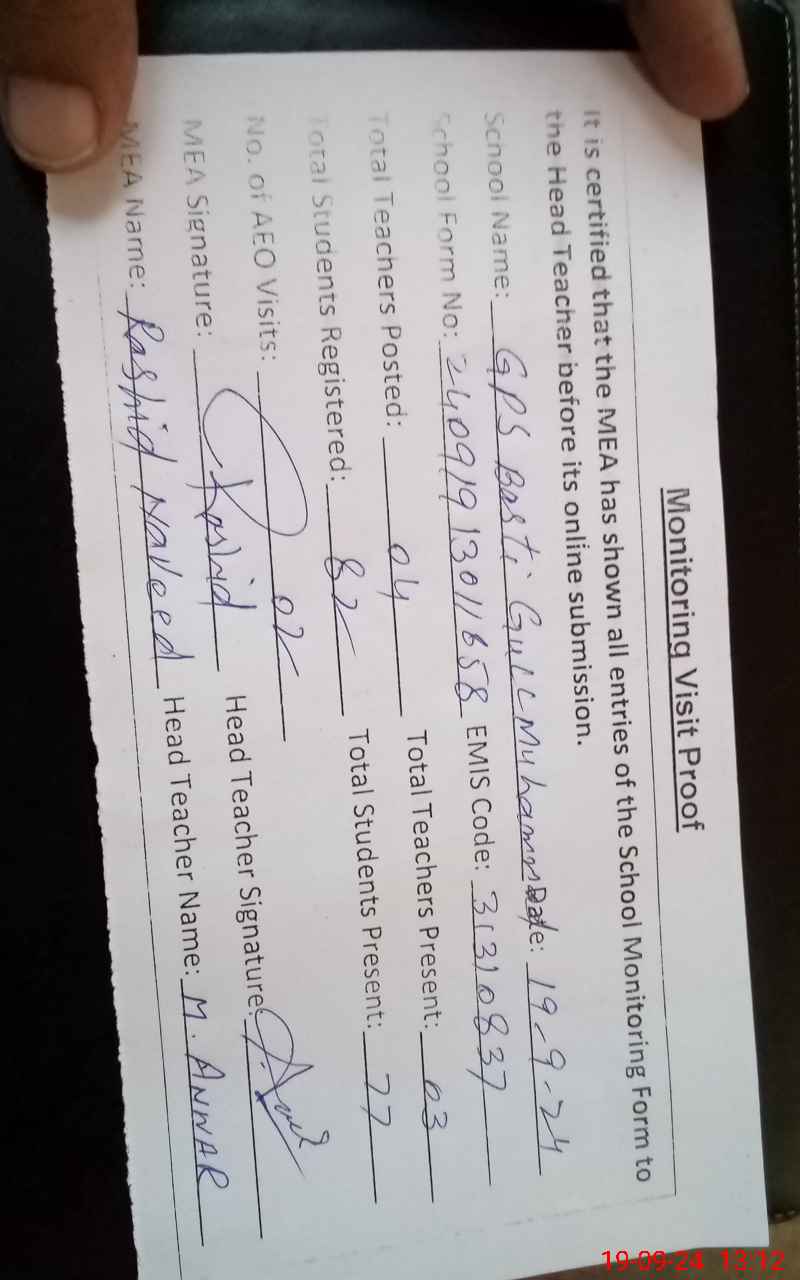 Monitoring Visit Proof
It is certified that the MEA has shown all entries of the School Monitoring Form to
the Head Teacher before its online submission.
School Name: GPS Basti Gull Muhammad Date: 19-9-24
School Form No: 24091913011658 EMIS Code: 31310837
Total Teachers Posted: 04 Total Teachers Present: 03
Total Students Registered: 82 Total Students Present: 77
No. of AEO Visits: 02
MEA Signature: Rashid Head Teacher Signature:
MEA Name: Rashid Naveed Head Teacher Name: M. ANWAR
19-09-24 13:12